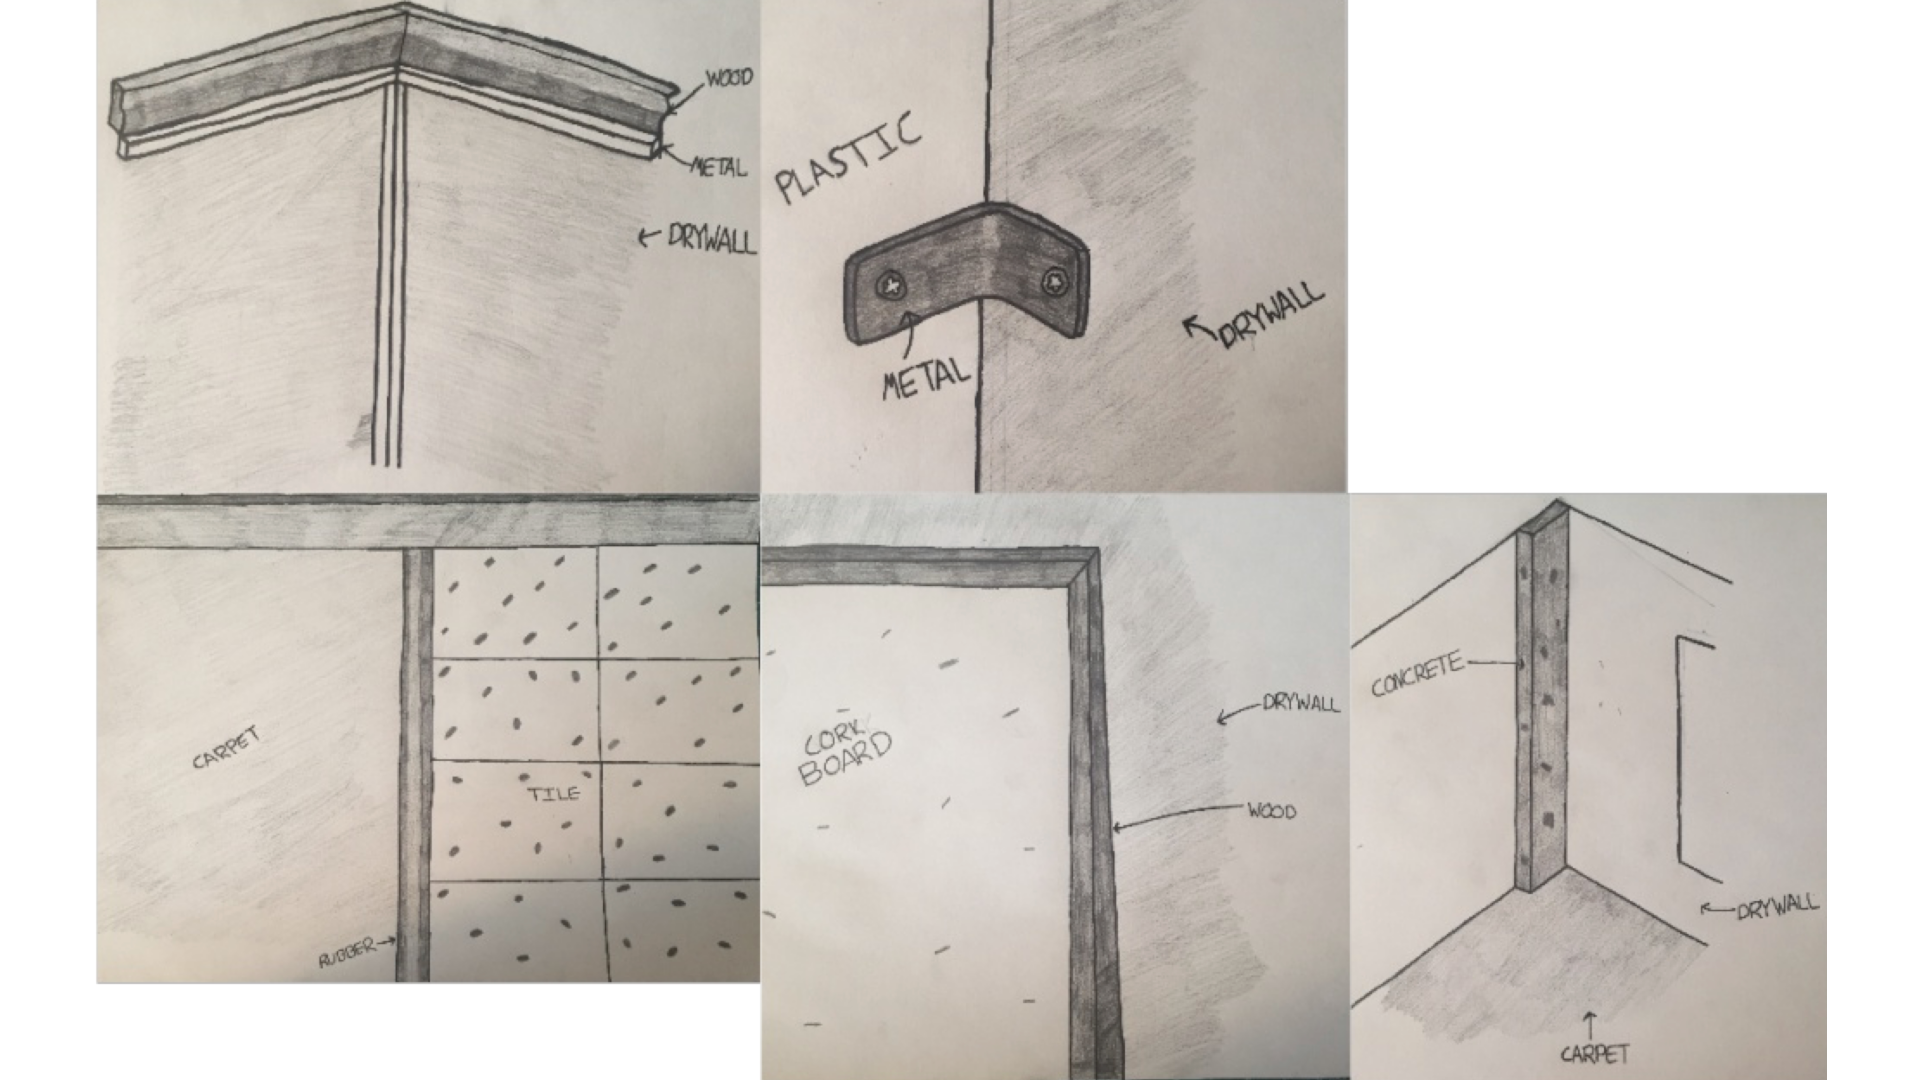 WOOD
METAL
DRYWALL
PLASTIC
METAL
DRYWALL
CARPET
TILE
RUBBER
CORK
BOARD
DRYWALL
WOOD
CONCRETE
DRYWALL
CARPET